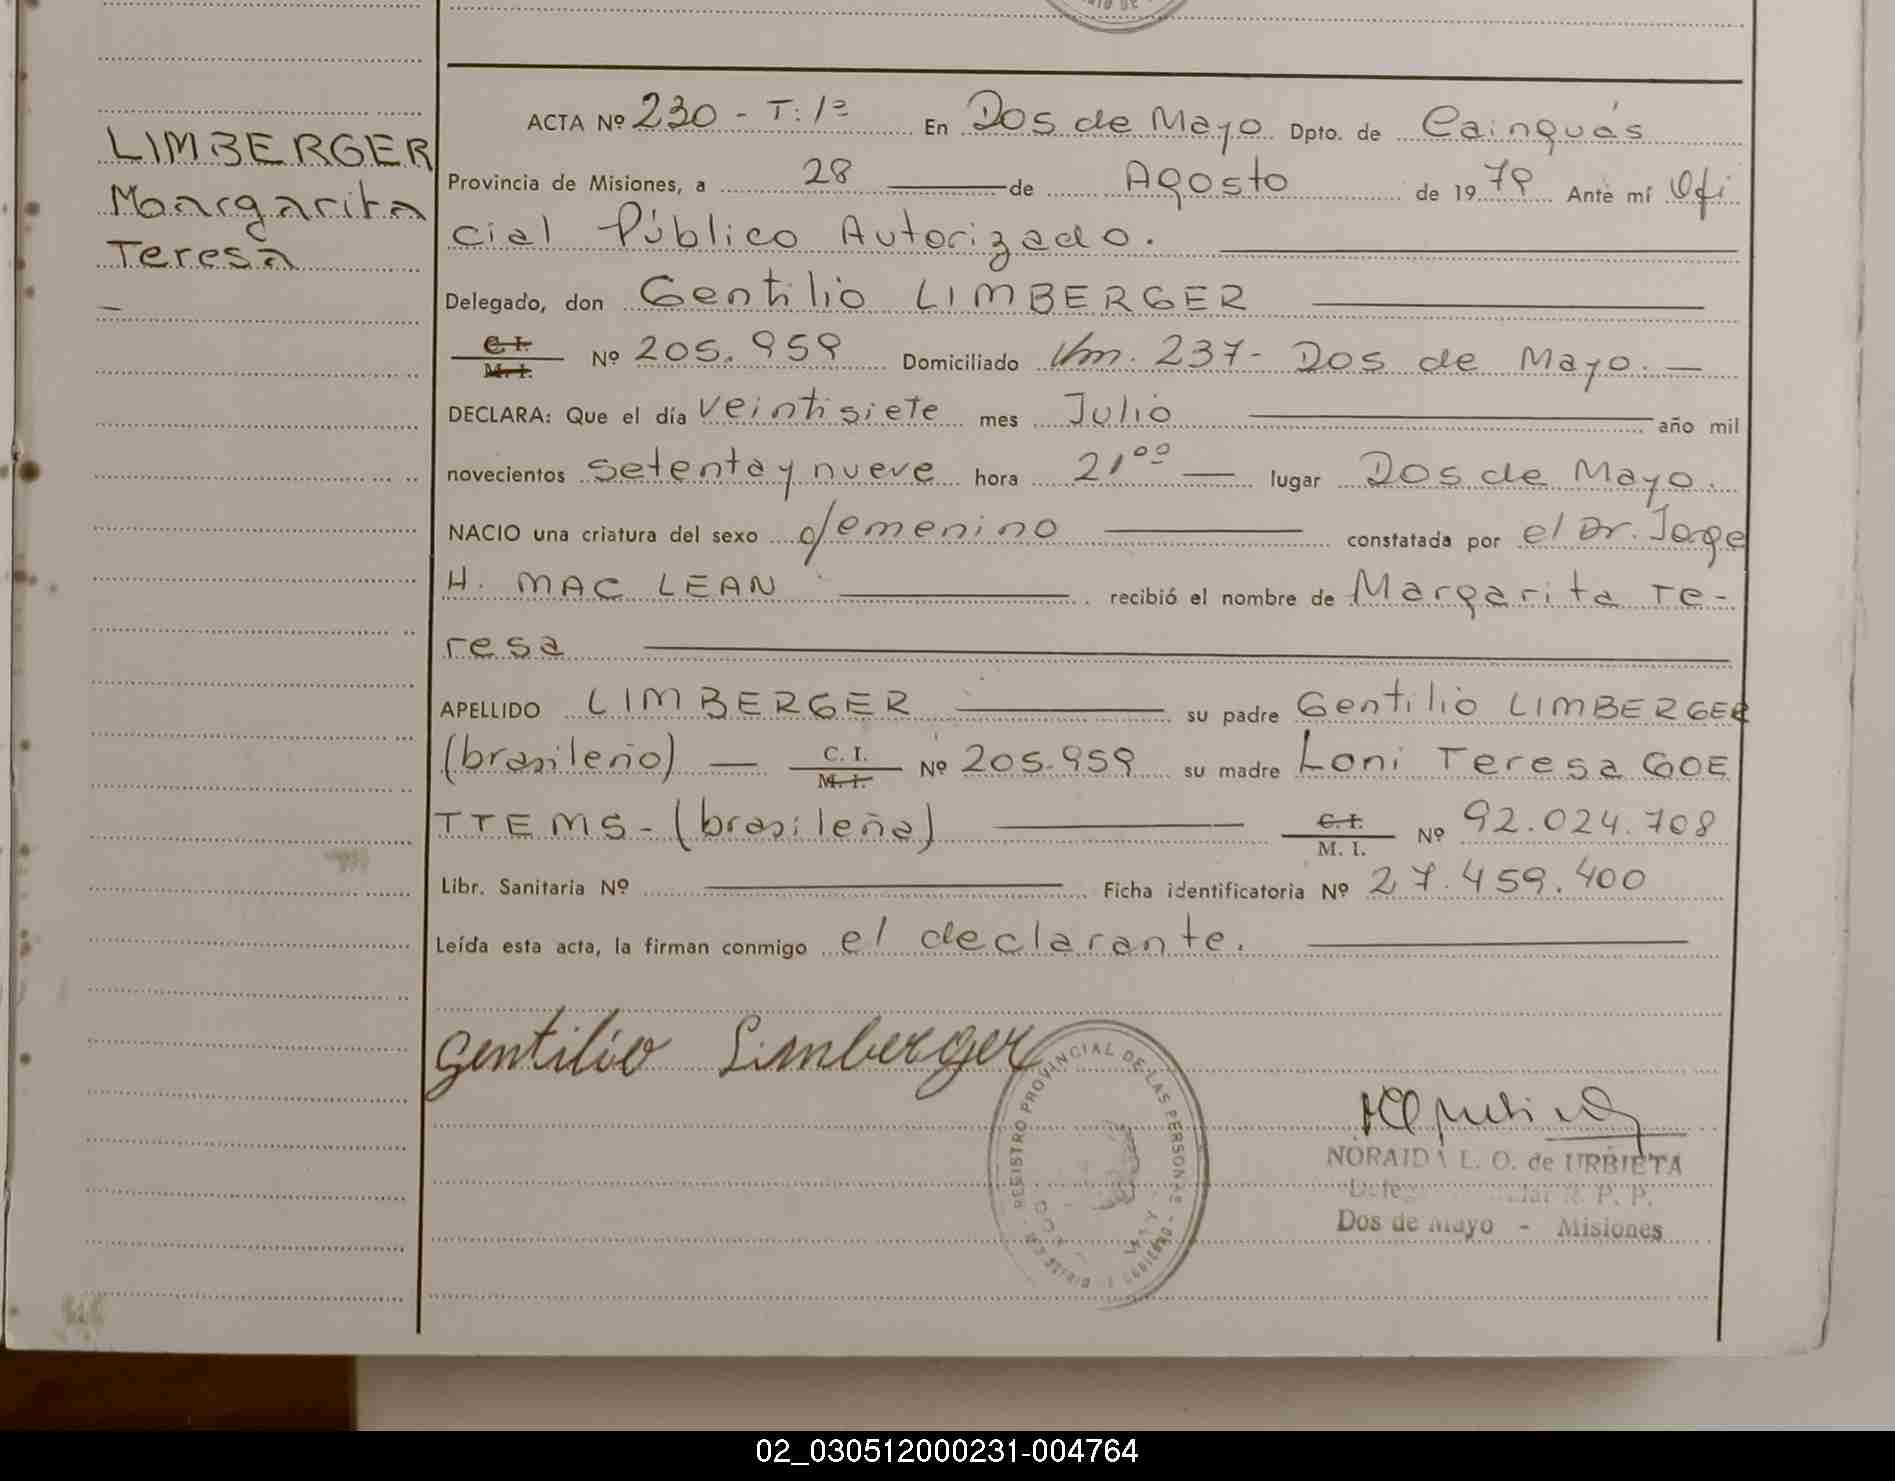 LIMBERGER
Margarita
Teresa
ACTA Nº 230 - T: 1ª En Dos de Mayo Dpto. de Cainguás
Provincia de Misiones, a 28 de Agosto de 1979 Ante mí Ofi
cial Público Autorizado.
Delegado, don Gentilio LIMBERGER
C. I.
M. I. Nº 205.959 Domiciliado Km. 237- Dos de Mayo. -
DECLARA: Que el día veintisiete mes Julio año mil
novecientos setenta y nueve hora 21 00 lugar Dos de Mayo.
NACIO una criatura del sexo femenino constatada por el Dr. Jorge
H. MAC LEAN recibió el nombre de Margarita Te-
resa
APELLIDO LIMBERGER su padre Gentilio LIMBERGER
(brasileño) - C. I.
M. I. Nº 205.959 su madre Loni Teresa GOE
TTEMS - (brasileña) C. I.
M. I. Nº 92.024.708
Libr. Sanitaria Nº Ficha identificatoria Nº 27.459.400
Leída esta acta, la firman conmigo el declarante.
Gentilio Limberger
REGISTRO PROVINCIAL DE LAS PERSONAS - GOBIERNO
NORAIDA L. O. de URBIETA
R. P. P.
Dos de Mayo - Misiones
02_030512000231-004764